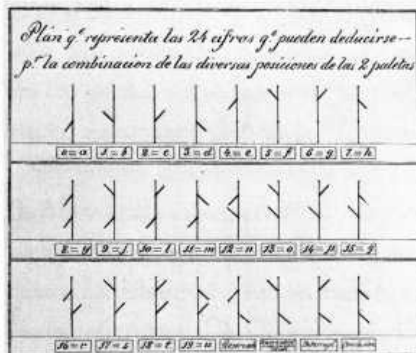 Plan q.e representa las 24 cifras q.e pueden deducirse—
p.r la combinacion de las diversas posiciones de las 2 paletas
0=a 1=b 2=c 3=d 4=e 5=f 6=g 7=h
8=y 9=j 10=l 11=m 12=n 13=o 14=p 15=q
16=r 17=s 18=t 19=u